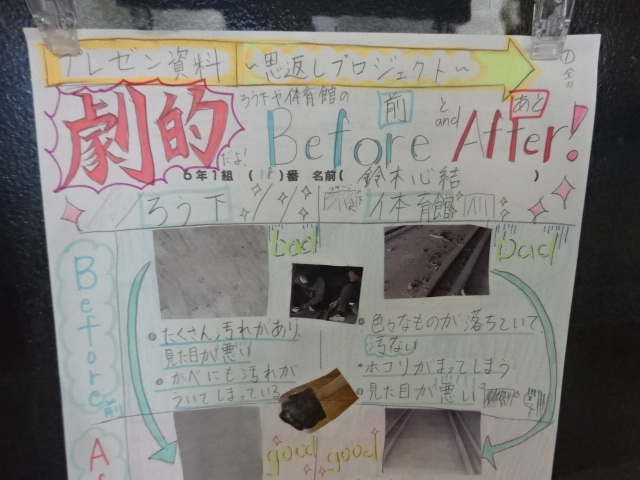 プレゼン資料 ~恩返しプロジェクト~
① 全力
ろう下や体育館の 前 と あと
劇的だよ! Before and After!
6年1組 (18)番 名前( 鈴木心結 )
ろう下 体育館
Before 前
bad
bad
・たくさん汚れがあり
見た目が悪い
・かべにも汚れが
ついてしまっている
・色々なものが落ちていて
汚ない
・ホコリがまってしまう
・見た目が悪い
good
good
Af